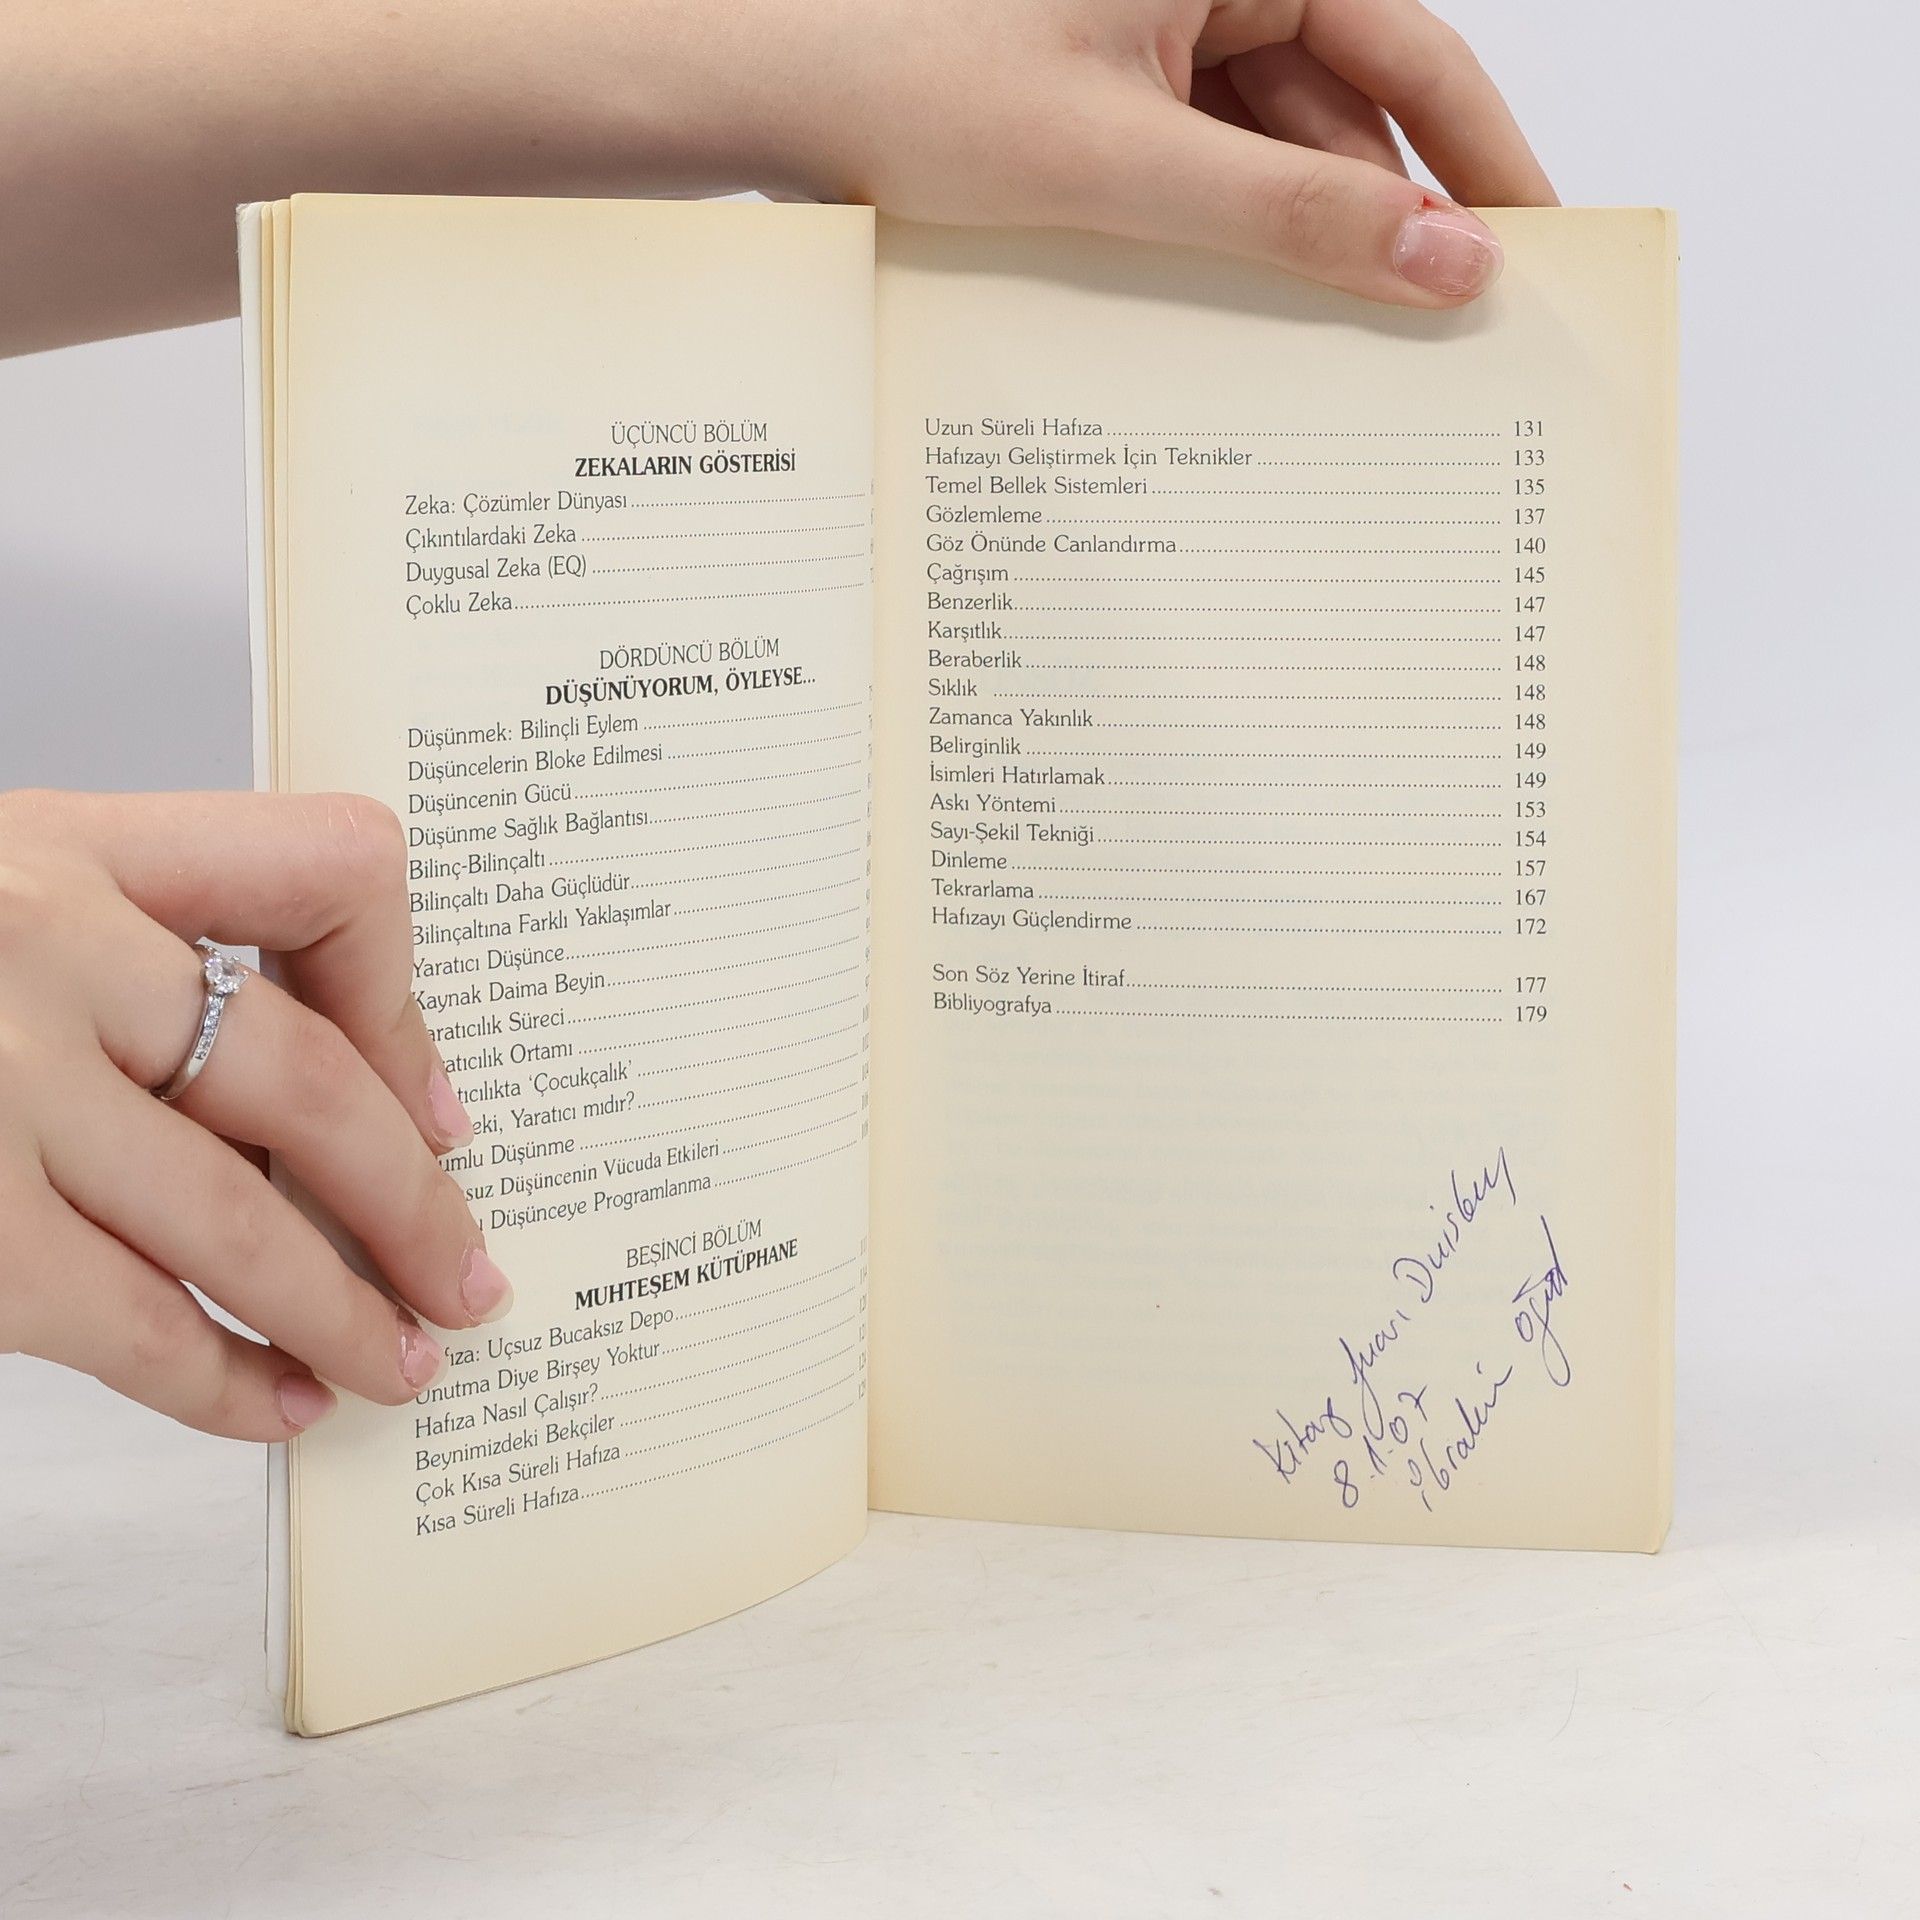 ÜÇÜNCÜ BÖLÜM
ZEKALARIN GÖSTERİSİ
Zeka: Çözümler Dünyası
Çıkıntılardaki Zeka
Duygusal Zeka (EQ)
Çoklu Zeka
DÖRDÜNCÜ BÖLÜM
DÜŞÜNÜYORUM, ÖYLEYSE...
Düşünmek: Bilinçli Eylem
Düşüncelerin Bloke Edilmesi
Düşüncenin Gücü
Düşünme Sağlık Bağlantısı
Bilinç-Bilinçaltı
Bilinçaltı Daha Güçlüdür
Bilinçaltına Farklı Yaklaşımlar
Yaratıcı Düşünce
Kaynak Daima Beyin
Süreci
Ortamı
'Çocukçalık'
Yaratıcı mıdır?
Düşünme
Düşüncenin Vücuda Etkileri
Düşünceye Programlanma
BEŞİNCİ BÖLÜM
MUHTEŞEM KÜTÜPHANE
Uçsuz Bucaksız Depo
Unutma Diye Birşey Yoktur
Hafıza Nasıl Çalışır?
Beynimizdeki Bekçiler
Çok Kısa Süreli Hafıza
Kısa Süreli Hafıza
Uzun Süreli Hafıza 131
Hafızayı Geliştirmek İçin Teknikler 133
Temel Bellek Sistemleri 135
Gözlemleme 137
Göz Önünde Canlandırma 140
Çağrışım 145
Benzerlik 147
Karşıtlık 147
Beraberlik 148
Sıklık 148
Zamanca Yakınlık 148
Belirginlik 149
İsimleri Hatırlamak 149
Askı Yöntemi 153
Sayı-Şekil Tekniği 154
Dinleme 157
Tekrarlama 167
Hafızayı Güçlendirme 172
Son Söz Yerine İtiraf 177
Bibliyografya 179
Kitap fuarı Duisburg
8.1.07
İbrahim Öğüt